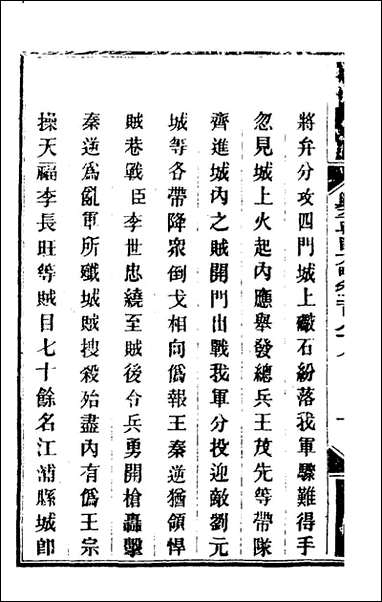 將弁分攻四門城上礮石紛落我軍驟難得手
忽見城上火起內應舉發總兵王茂先等帶隊
齊進城內之賊開門出戰我軍分投迎敵劉元
城等各帶降眾倒戈相向僞報王秦逆猶領悍
賊巷戰臣李世忠繞至賊後令兵勇開槍轟擊
秦逆爲亂軍所殲城賊搜殺殆盡內有僞王宗
操天福李長旺等賊目七十餘名江浦縣城卽